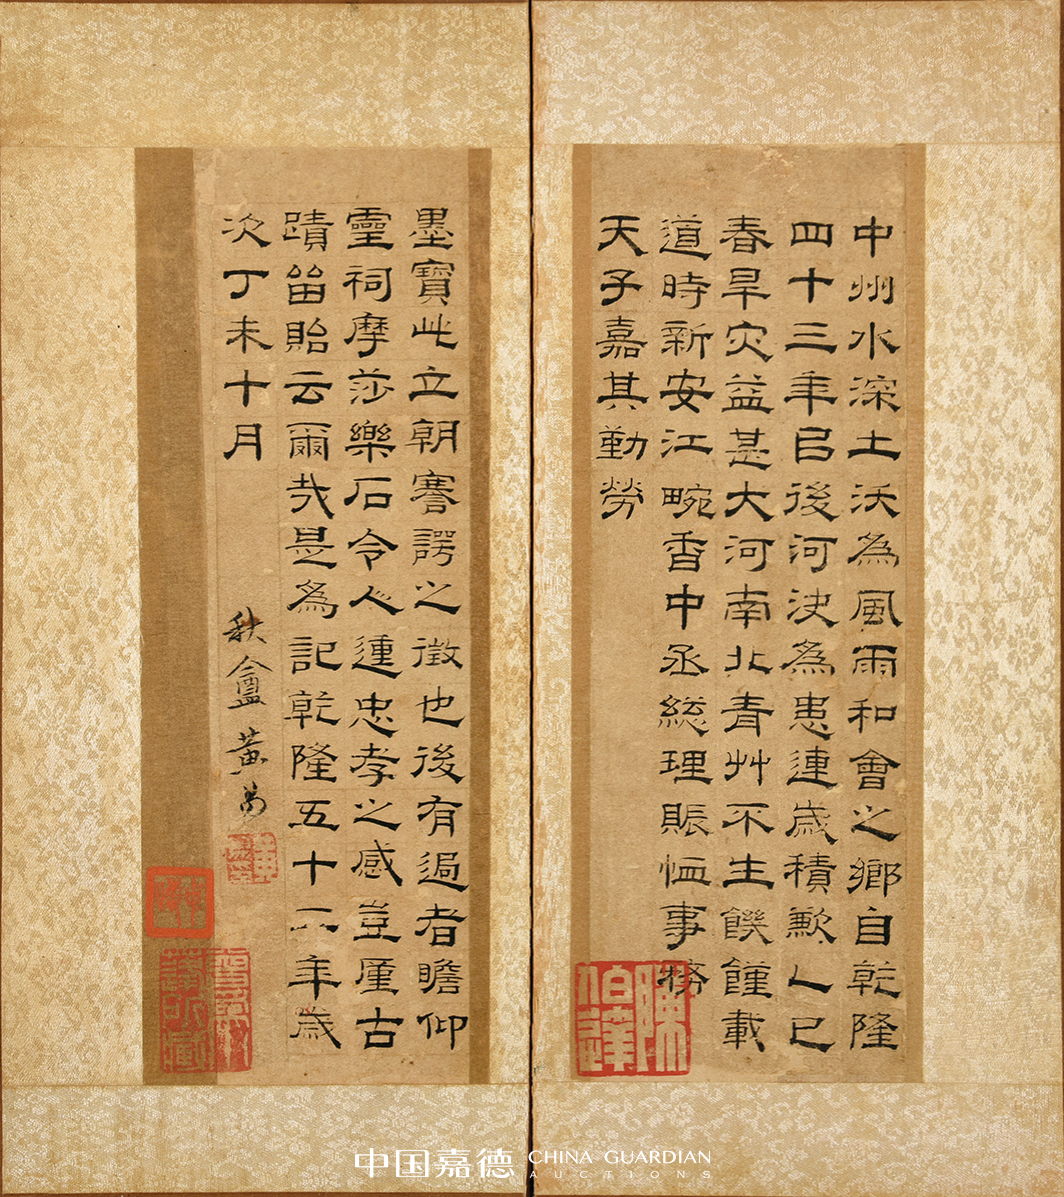 中州水深土沃為風雨和會之鄉自乾隆
四十三年㠯後河決為患連歲積歉人已
春旱灾益甚大河南北青艸不生饑饉載
道時新安江畹香中丞総理賑恤事務
天子嘉其勤勞
墨寶此立朝謇諤之徵也後有過者瞻仰
靈祠摩莎樂石令人動忠孝之感豈厪古
蹟畱貽云爾哉是為記乾隆五十二年歲
次丁未十月
秋盦黃易
中国嘉德 CHINA GUARDIAN
AUCTIONS